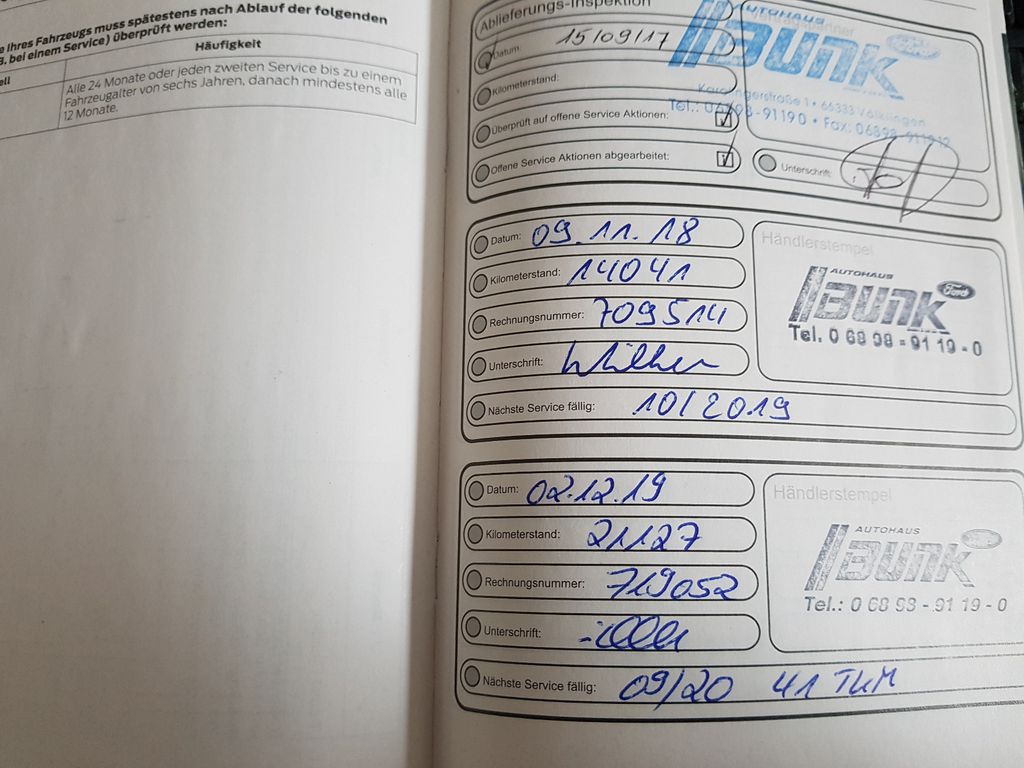 e Ihres Fahrzeugs muss spätestens nach Ablauf der folgenden
B. bei einem Service) überprüft werden:
Häufigkeit
ell
Alle 24 Monate oder jeden zweiten Service bis zu einem
Fahrzeugalter von sechs Jahren, danach mindestens alle
12 Monate.
Ablieferungs-Inspektion
Datum: 15/09/17
Kilometerstand:
Überprüft auf offene Service Aktionen:
Offene Service Aktionen abgearbeitet:
AUTOHAUS
BUNK
Ford
Karolingerstraße 1 • 66333 Völklingen
Tel.: 06898-91190 • Fax: 06898-911912
Unterschrift:
Datum: 09.11.18
Kilometerstand: 14041
Rechnungsnummer: 709514
Unterschrift:
Nächste Service fällig: 10/2019
Händlerstempel
AUTOHAUS
BUNK
Ford
Tel. 0 68 98 - 91 19 - 0
Datum: 02.12.19
Kilometerstand: 21127
Rechnungsnummer: 719052
Unterschrift:
Nächste Service fällig: 09/20 41 TKM
Händlerstempel
AUTOHAUS
BUNK
Tel.: 0 68 98 - 91 19 - 0